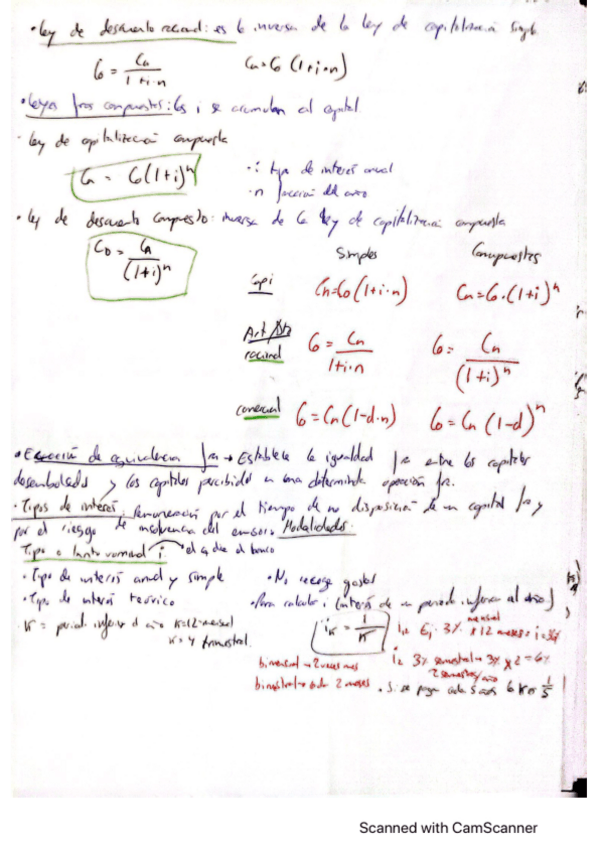 • Ley de descuento racional: es la inversa de la ley de capitalización simple
Co = Cn / 1+i·n    Cn = Co (1+i·n)
• Leyes fras compuestas: los i se acumulan al capital
· Ley de capitalización compuesta
Cn = Co(1+i)^n    · i tipo de interés anual
· n
• Ley de descuento compuesto: inversa de la ley de capitalización compuesta
Co = Cn / (1+i)^n
Simples    Compuestas
Capi    Cn=Co(1+i·n)    Cn=Co·(1+i)^n
racional    Co = Cn / 1+i·n    Co = Cn / (1+i)^n
comercial    Co = Cn (1-d·n)    Co = Cn (1-d)^n
• Ecuación de equivalencia fra → Establece la igualdad fra entre los capitales
desembolsados y los capitales percibidos en una determinada operación fra.
· Tipos de interés: Remuneración por el tiempo de no disposición de un capital fra y
por el riesgo de insolvencia del emisor. Modalidades:
Tipo o tanto nominal i → el q dice el banco
· Tipo de interés anual y simple    · No recoge gastos
· Tipo de interés teórico    · Para calcular i (interés de un periodo inferior al año)
· K = period. inferior al año K=12 mensual    iK = i / K    3% mensual x 12 meses = i = 36%
K = 4 trimestral    3% semestral → 3% x 2 = 6%
bimensual → 2 veces mes    2 semestres/año
bimestral → cada 2 meses    · Si se paga cada 5 años la K es 1/5
Scanned with CamScanner